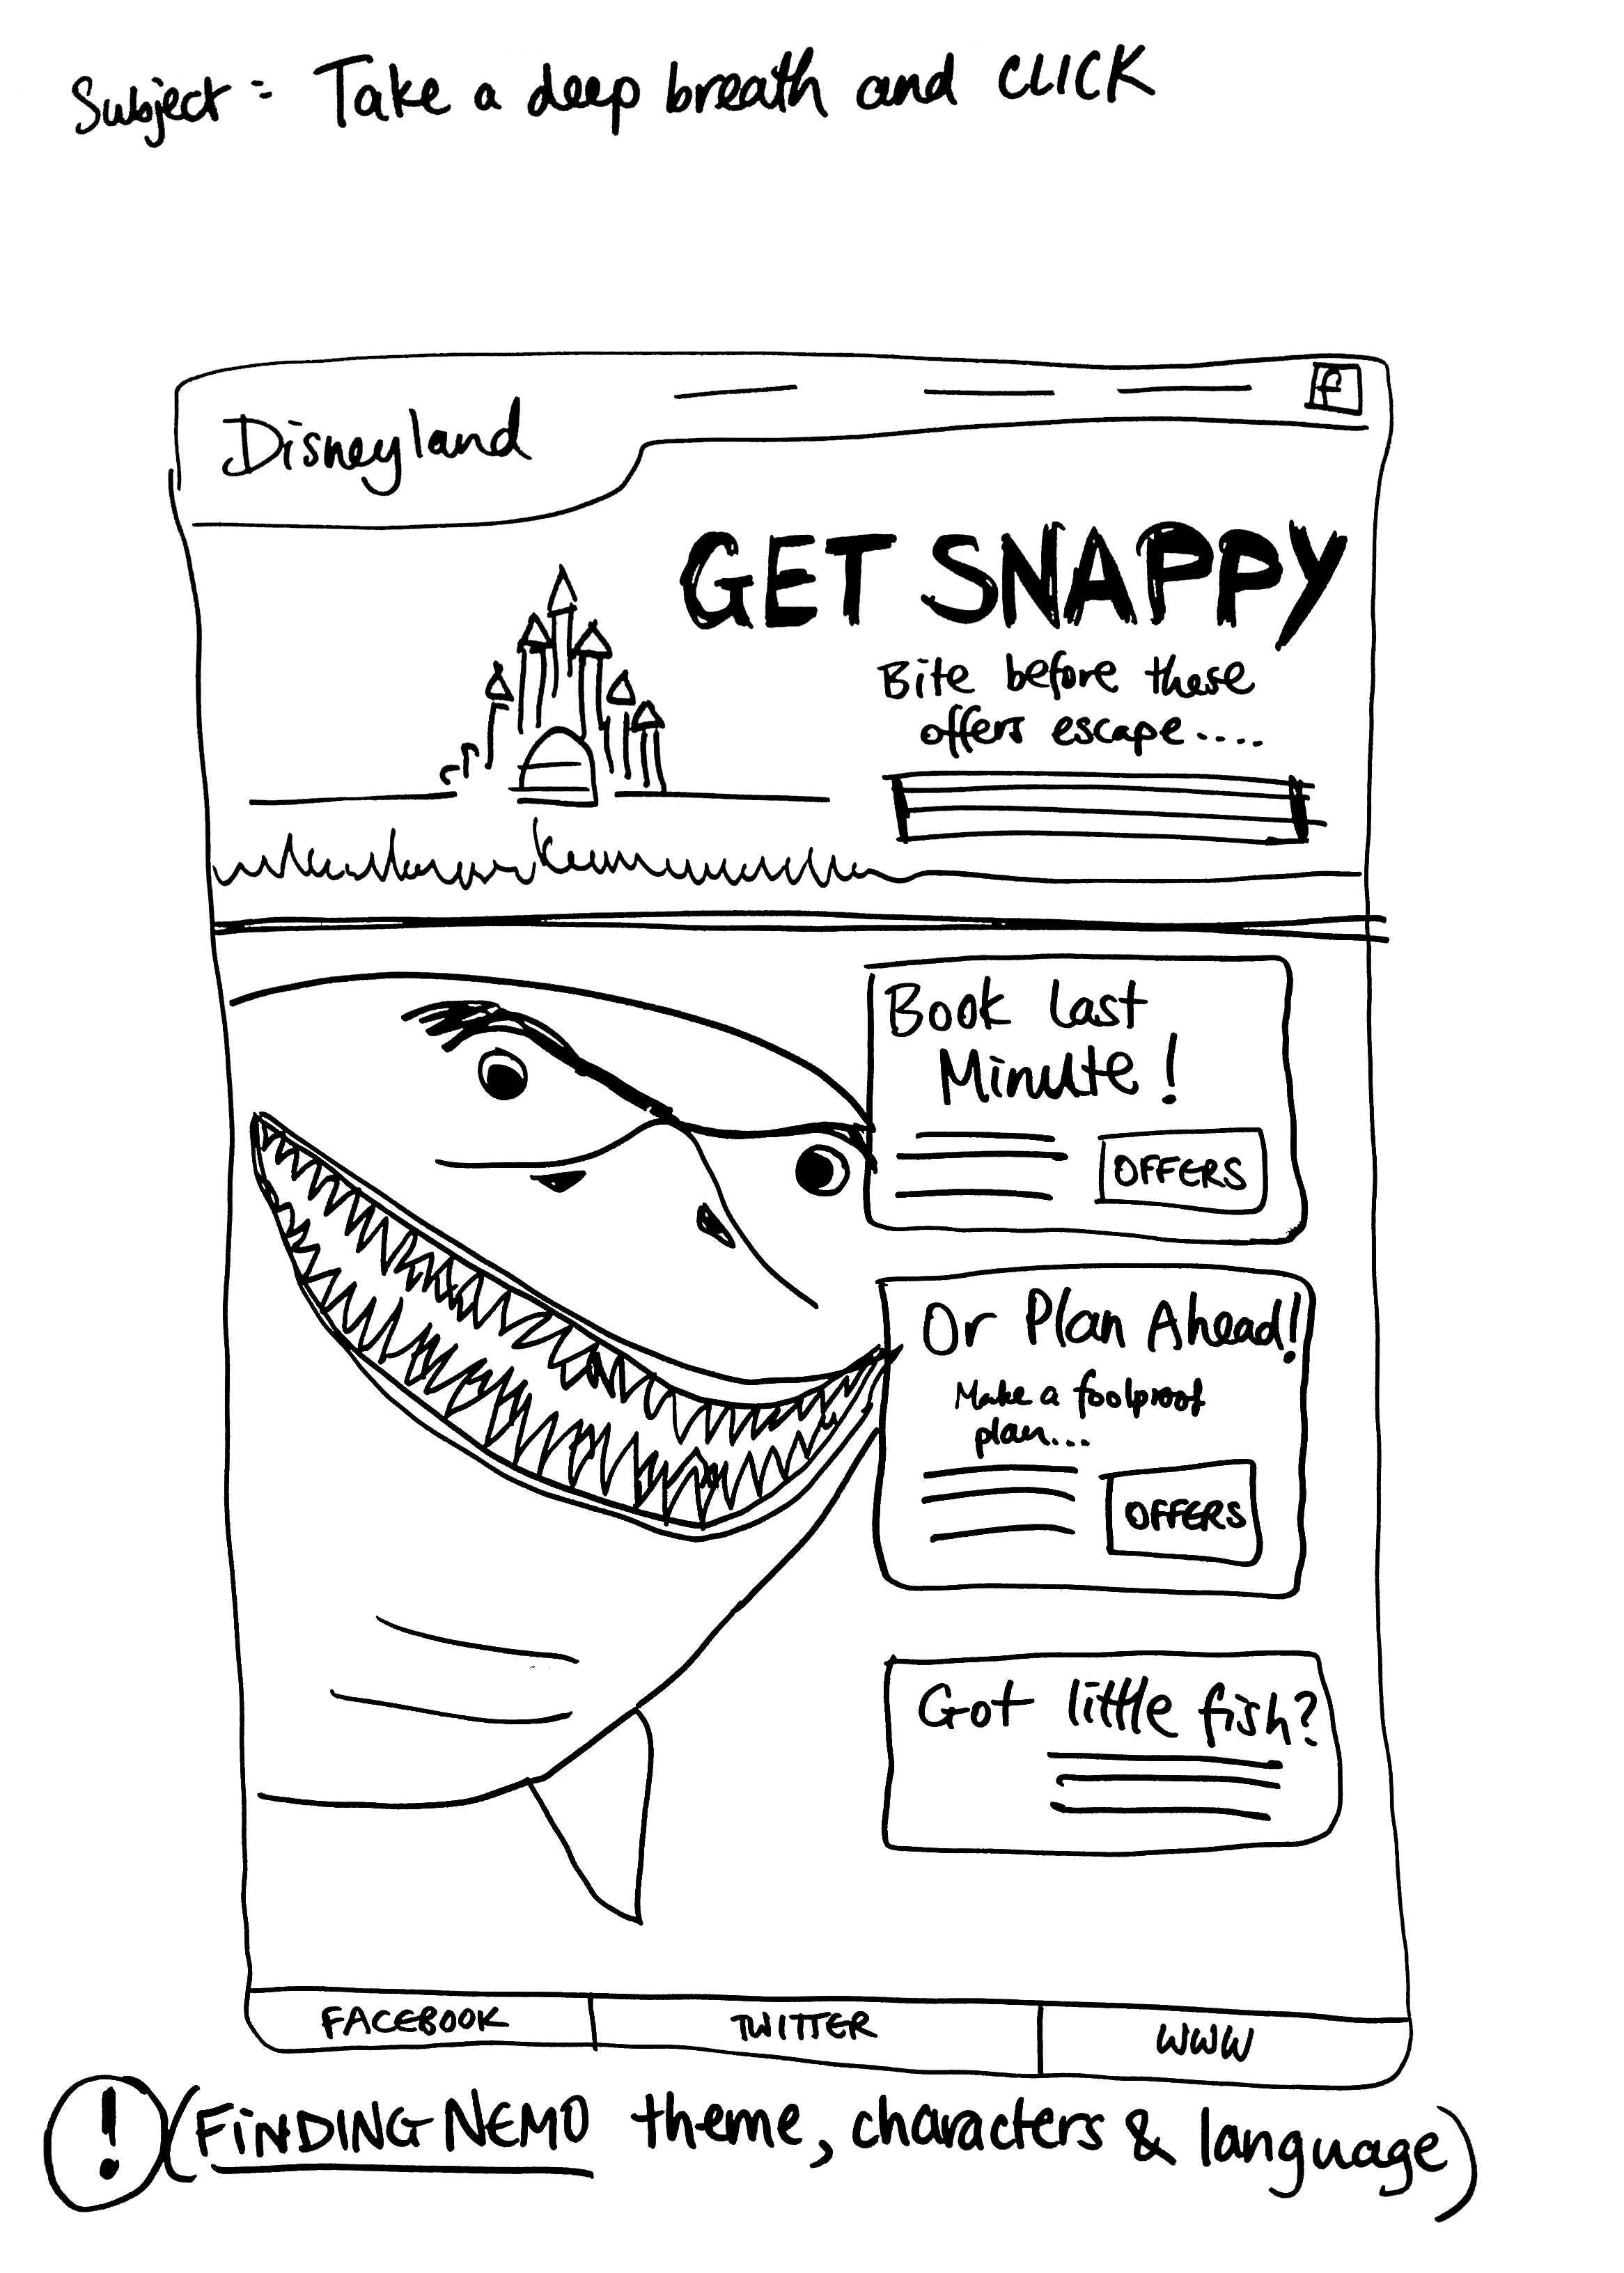 Subject = Take a deep breath and CLICK
f
Disneyland
GET SNAPPY
Bite before these
offers escape....
Book Last
Minute!
OFFERS
Or Plan Ahead!
Make a foolproof
plan...
OFFERS
Got little fish?
FACEBOOK
TWITTER
WWW
! (FINDING NEMO theme, characters & language)